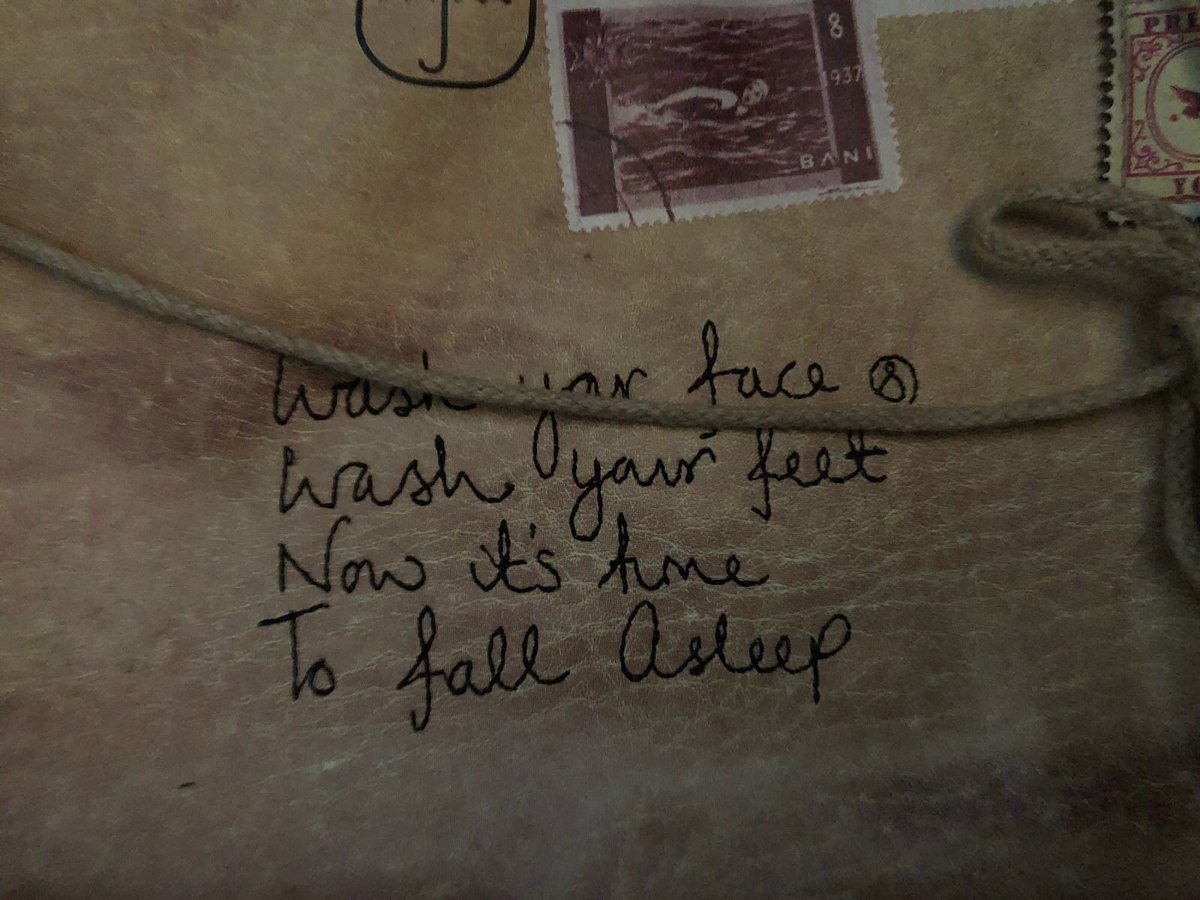 8
1937
BANI
PRE
Wash your face &
Wash your feet
Now it's time
To fall Asleep